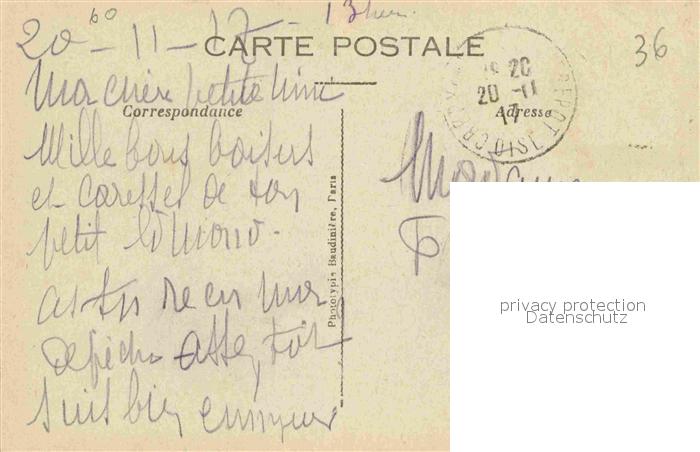 20 - 11 - 17 - 13 heu.
36
CARTE POSTALE
Correspondance
Adresse
20
20 -11
17
Ma chère petite
Mille bons baisers
et caresses de ton
petit
as tu recu ma
depeche assez tôt
suis bien ennuyé
Madame
Phototypie Baudinière, Paris
privacy protection
Datenschutz